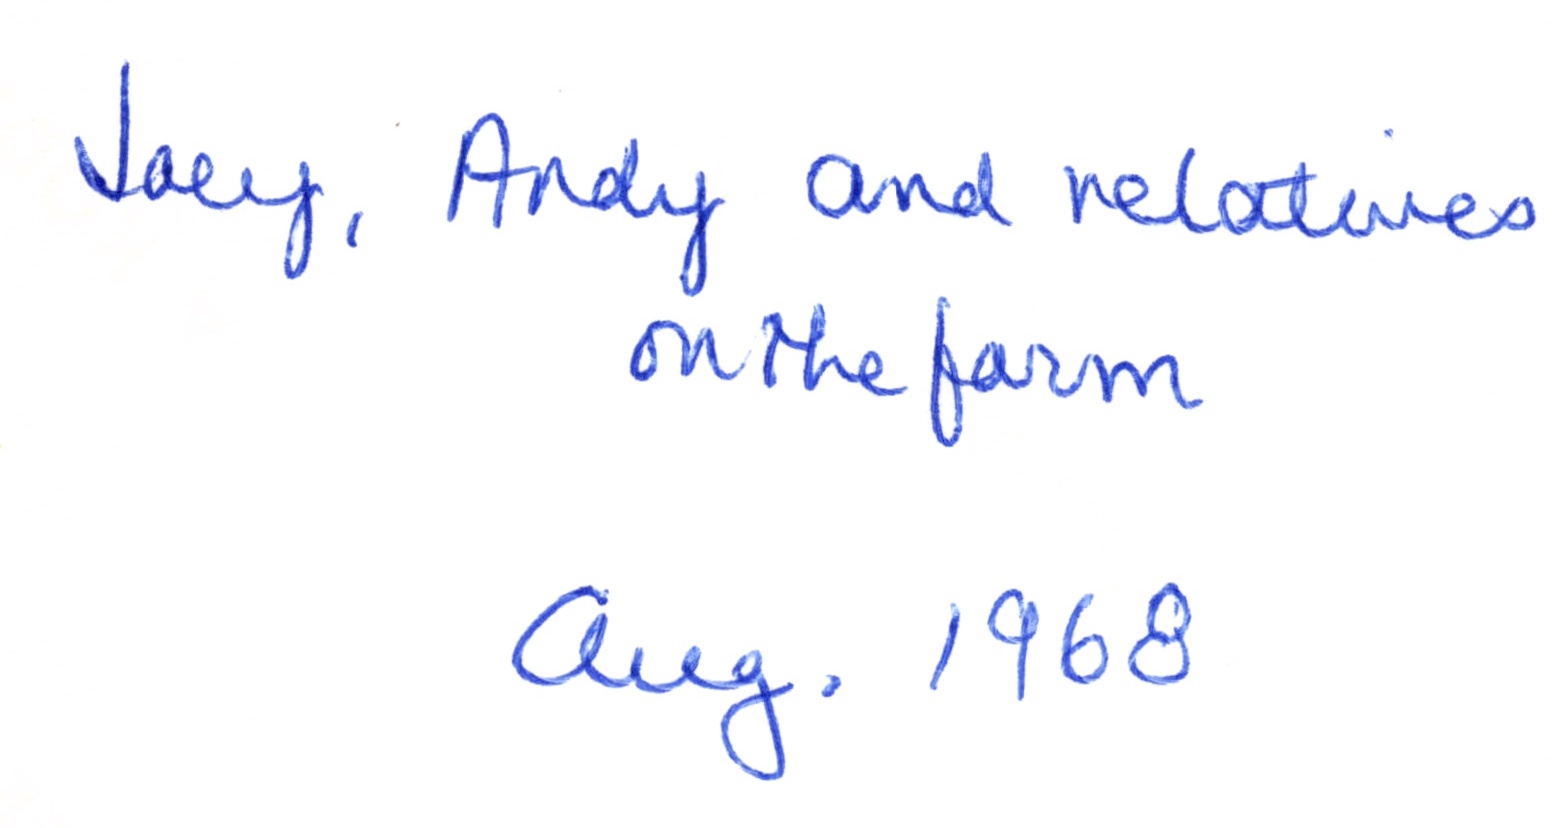 Joey, Andy and relatives
on the farm
Aug. 1968